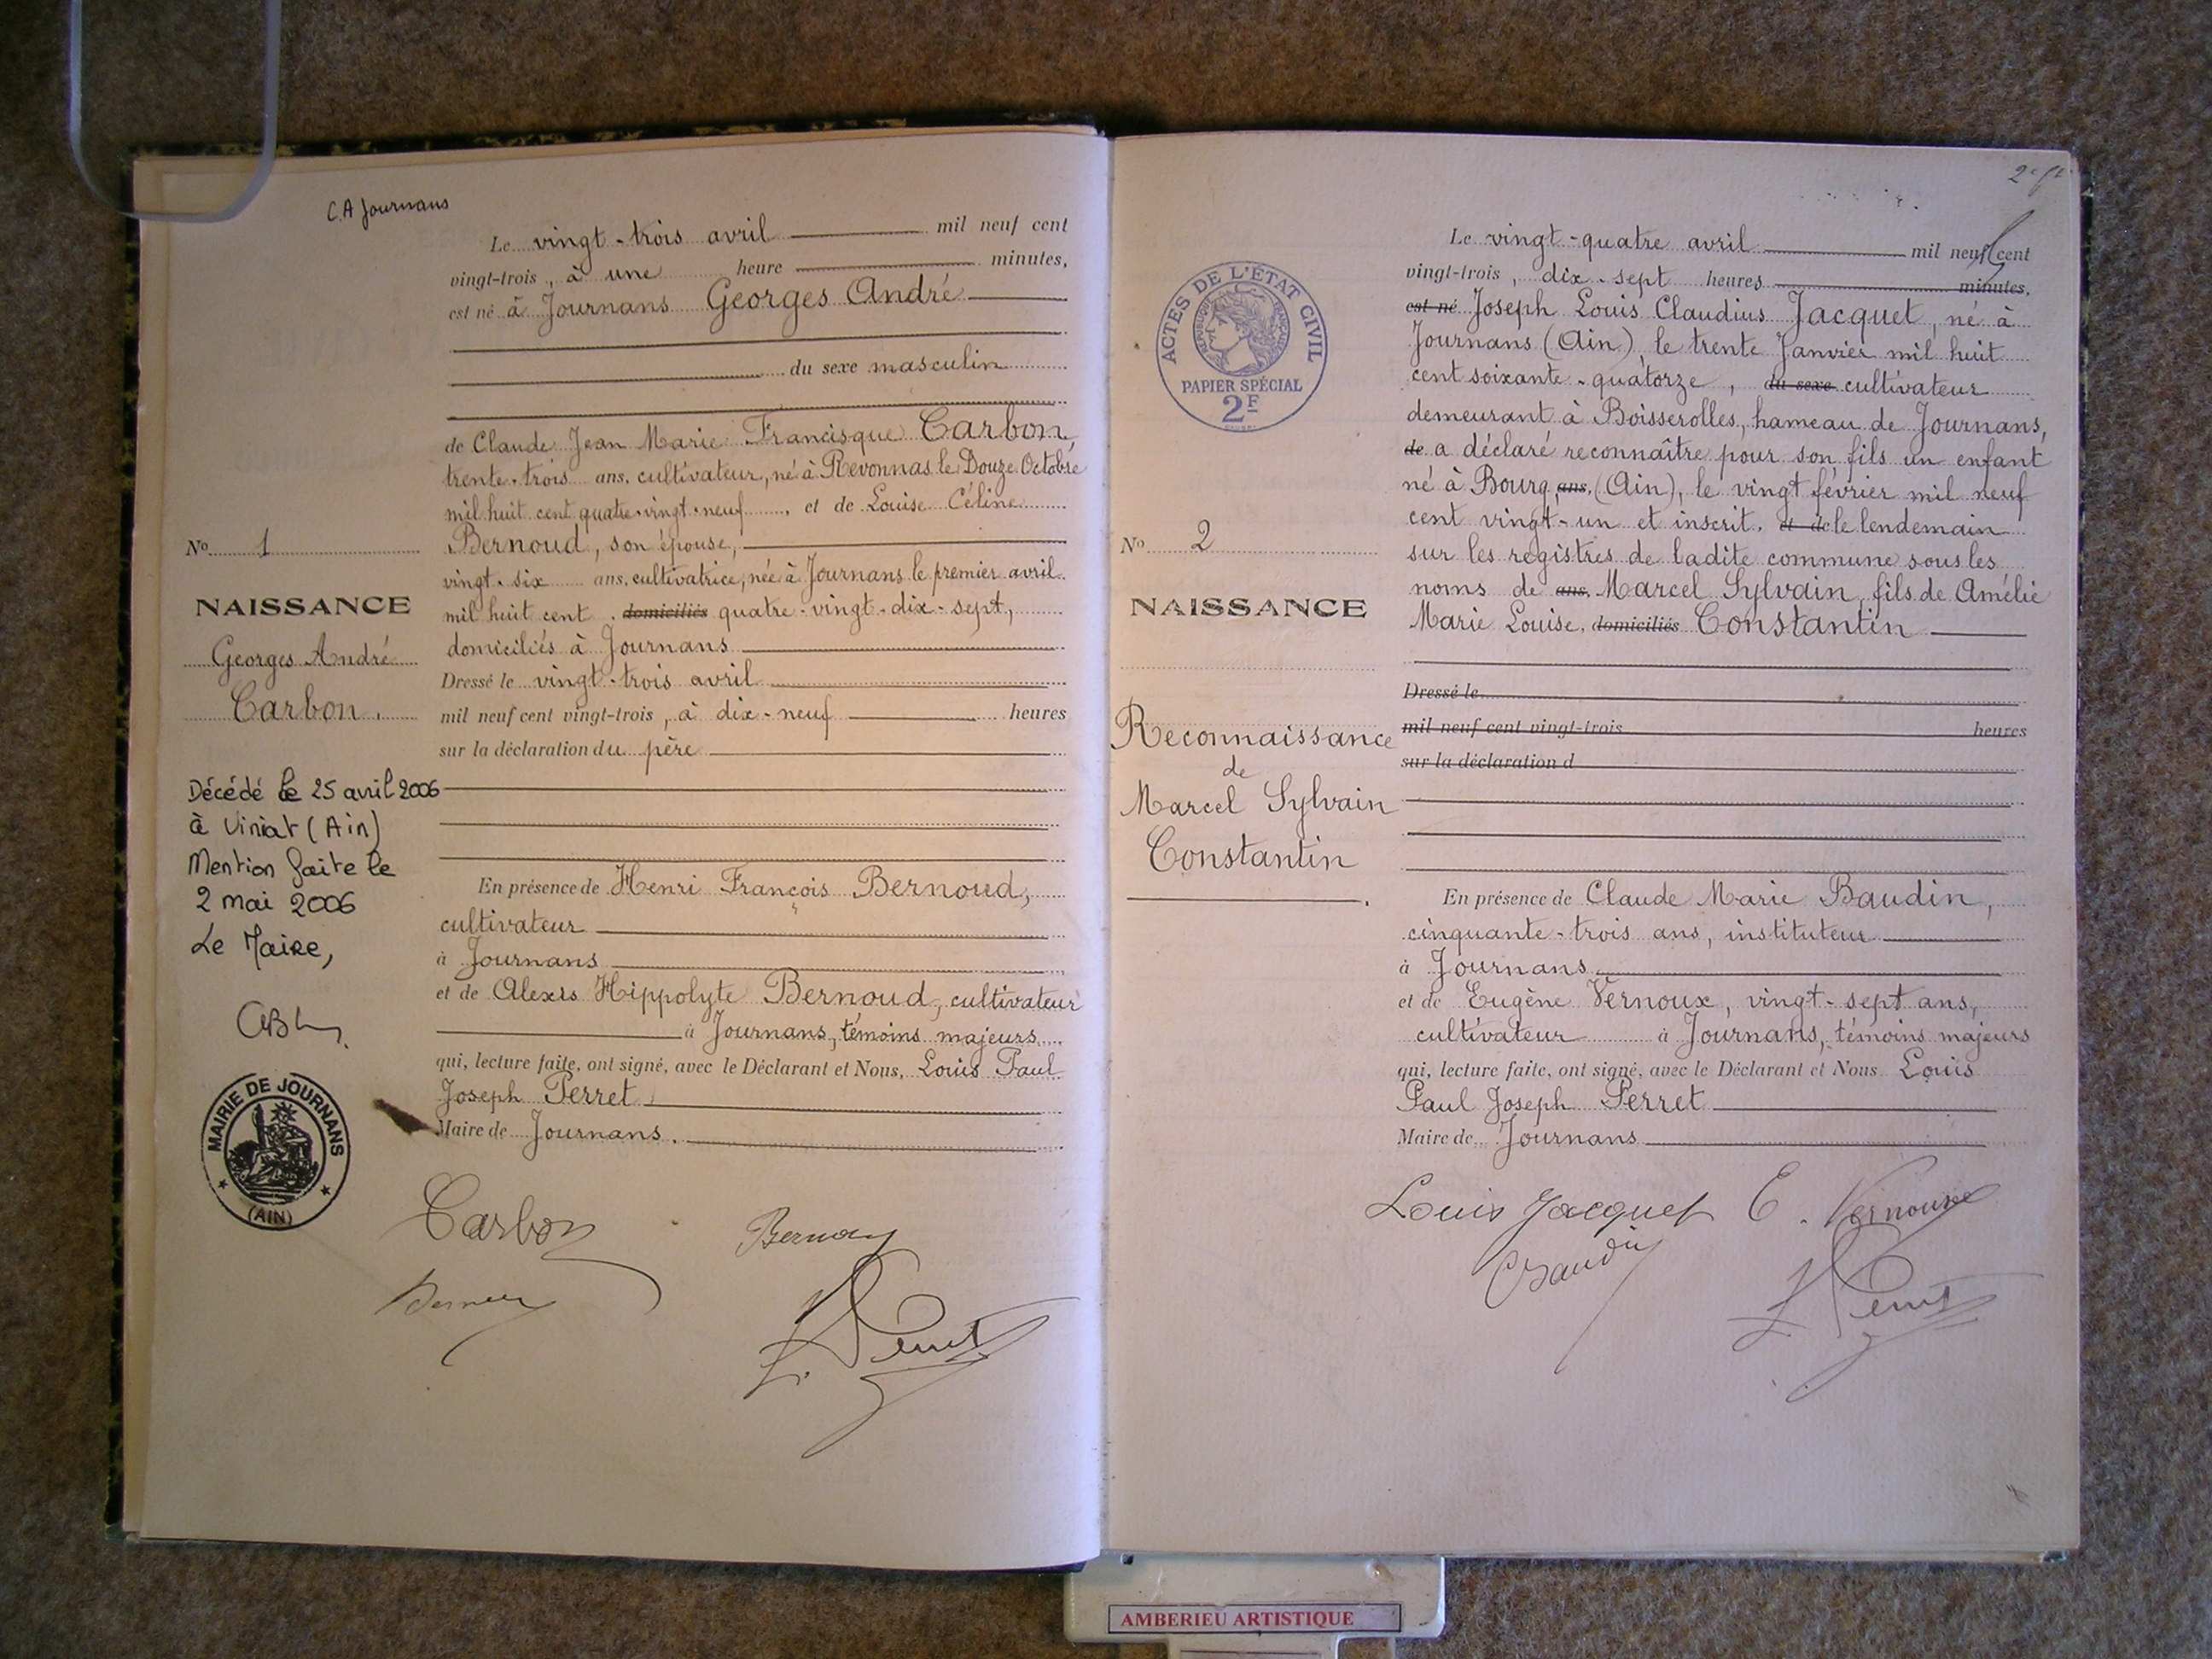 C.A Journans
Le vingt-trois avril mil neuf cent
vingt-trois, à une heure minutes,
est né à Journans Georges André
du sexe masculin
de Claude Jean Marie Francisque Carbon,
trente-trois ans, cultivateur, né à Revonnas le Douze Octobre
mil huit cent quatre-vingt-neuf, et de Louise Céline
Bernoud, son épouse,
vingt-six ans, cultivatrice, née à Journans le premier avril
mil huit cent, domiciliés quatre-vingt-dix-sept,
domiciliés à Journans
Dressé le vingt-trois avril
mil neuf cent vingt-trois, à dix-neuf heures
sur la déclaration du père
En présence de Henri François Bernoud,
cultivateur
à Journans
et de Alexis Hippolyte Bernoud, cultivateur
à Journans, témoins majeurs
qui, lecture faite, ont signé, avec le Déclarant et Nous, Louis Paul
Joseph Perret
Maire de Journans.
Carbon
No 1
NAISSANCE
Georges André
Carbon.
Décédé le 25 avril 2006
à Viriat (Ain)
Mention faite le
2 mai 2006
Le Maire,
MAIRIE DE JOURNANS
(AIN)
ACTES DE L'ÉTAT CIVIL
RÉPUBLIQUE FRANÇAISE
PAPIER SPÉCIAL
2F
No 2
NAISSANCE
Reconnaissance
de
Marcel Sylvain
Constantin
Le vingt-quatre avril mil neuf cent
vingt-trois, dix-sept heures minutes,
est né Joseph Louis Claudius Jacquet, né à
Journans (Ain), le trente Janvier mil huit
cent soixante-quatorze, du sexe cultivateur
demeurant à Boisserolles, hameau de Journans,
de a déclaré reconnaître pour son fils un enfant
né à Bourg ans, (Ain), le vingt février mil neuf
cent vingt-un et inscrit, et de le lendemain
sur les registres de ladite commune sous les
noms de ans, Marcel Sylvain, fils de Amélie
Marie Louise, domiciliés Constantin
Dressé le
mil neuf cent vingt-trois heures
sur la déclaration d
En présence de Claude Marie Baudin,
cinquante-trois ans, instituteur
à Journans
et de Eugène Vernoux, vingt-sept ans,
cultivateur à Journans, témoins majeurs
qui, lecture faite, ont signé, avec le Déclarant et Nous Louis
Paul Joseph Perret
Maire de Journans
Louis Jacquet E. Vernoux
Baudin
L Perret
AMBERIEU ARTISTIQUE